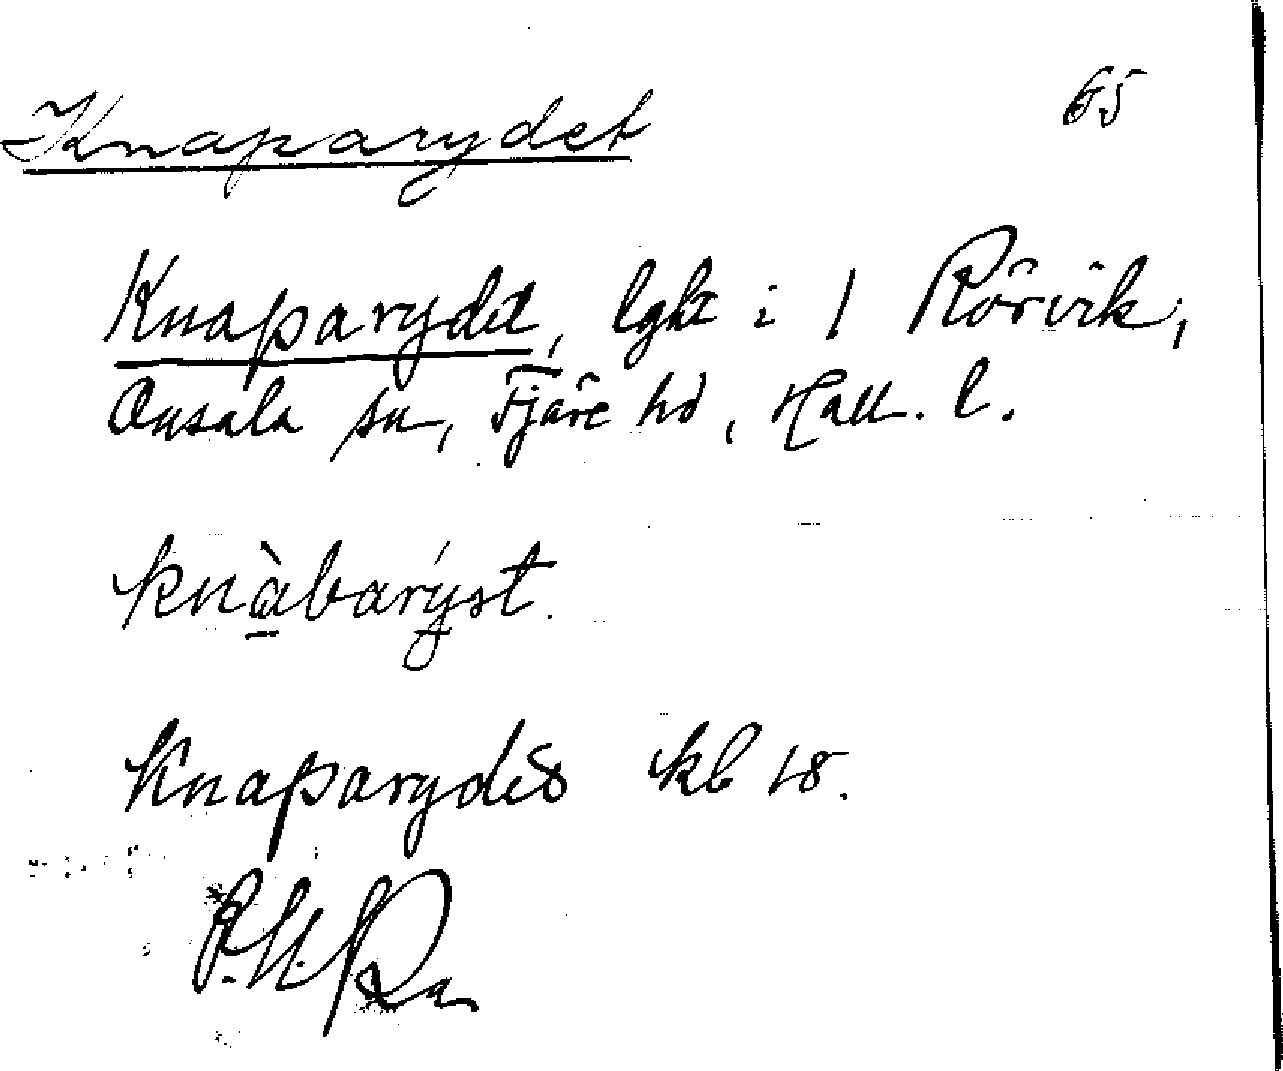 Knaparydet
65
Knaparydet, lght i 1 Rörvik,
Onsala sn, Fjäre hd, Hall. l.
knàbarýst.
Knaparydes kb 18.